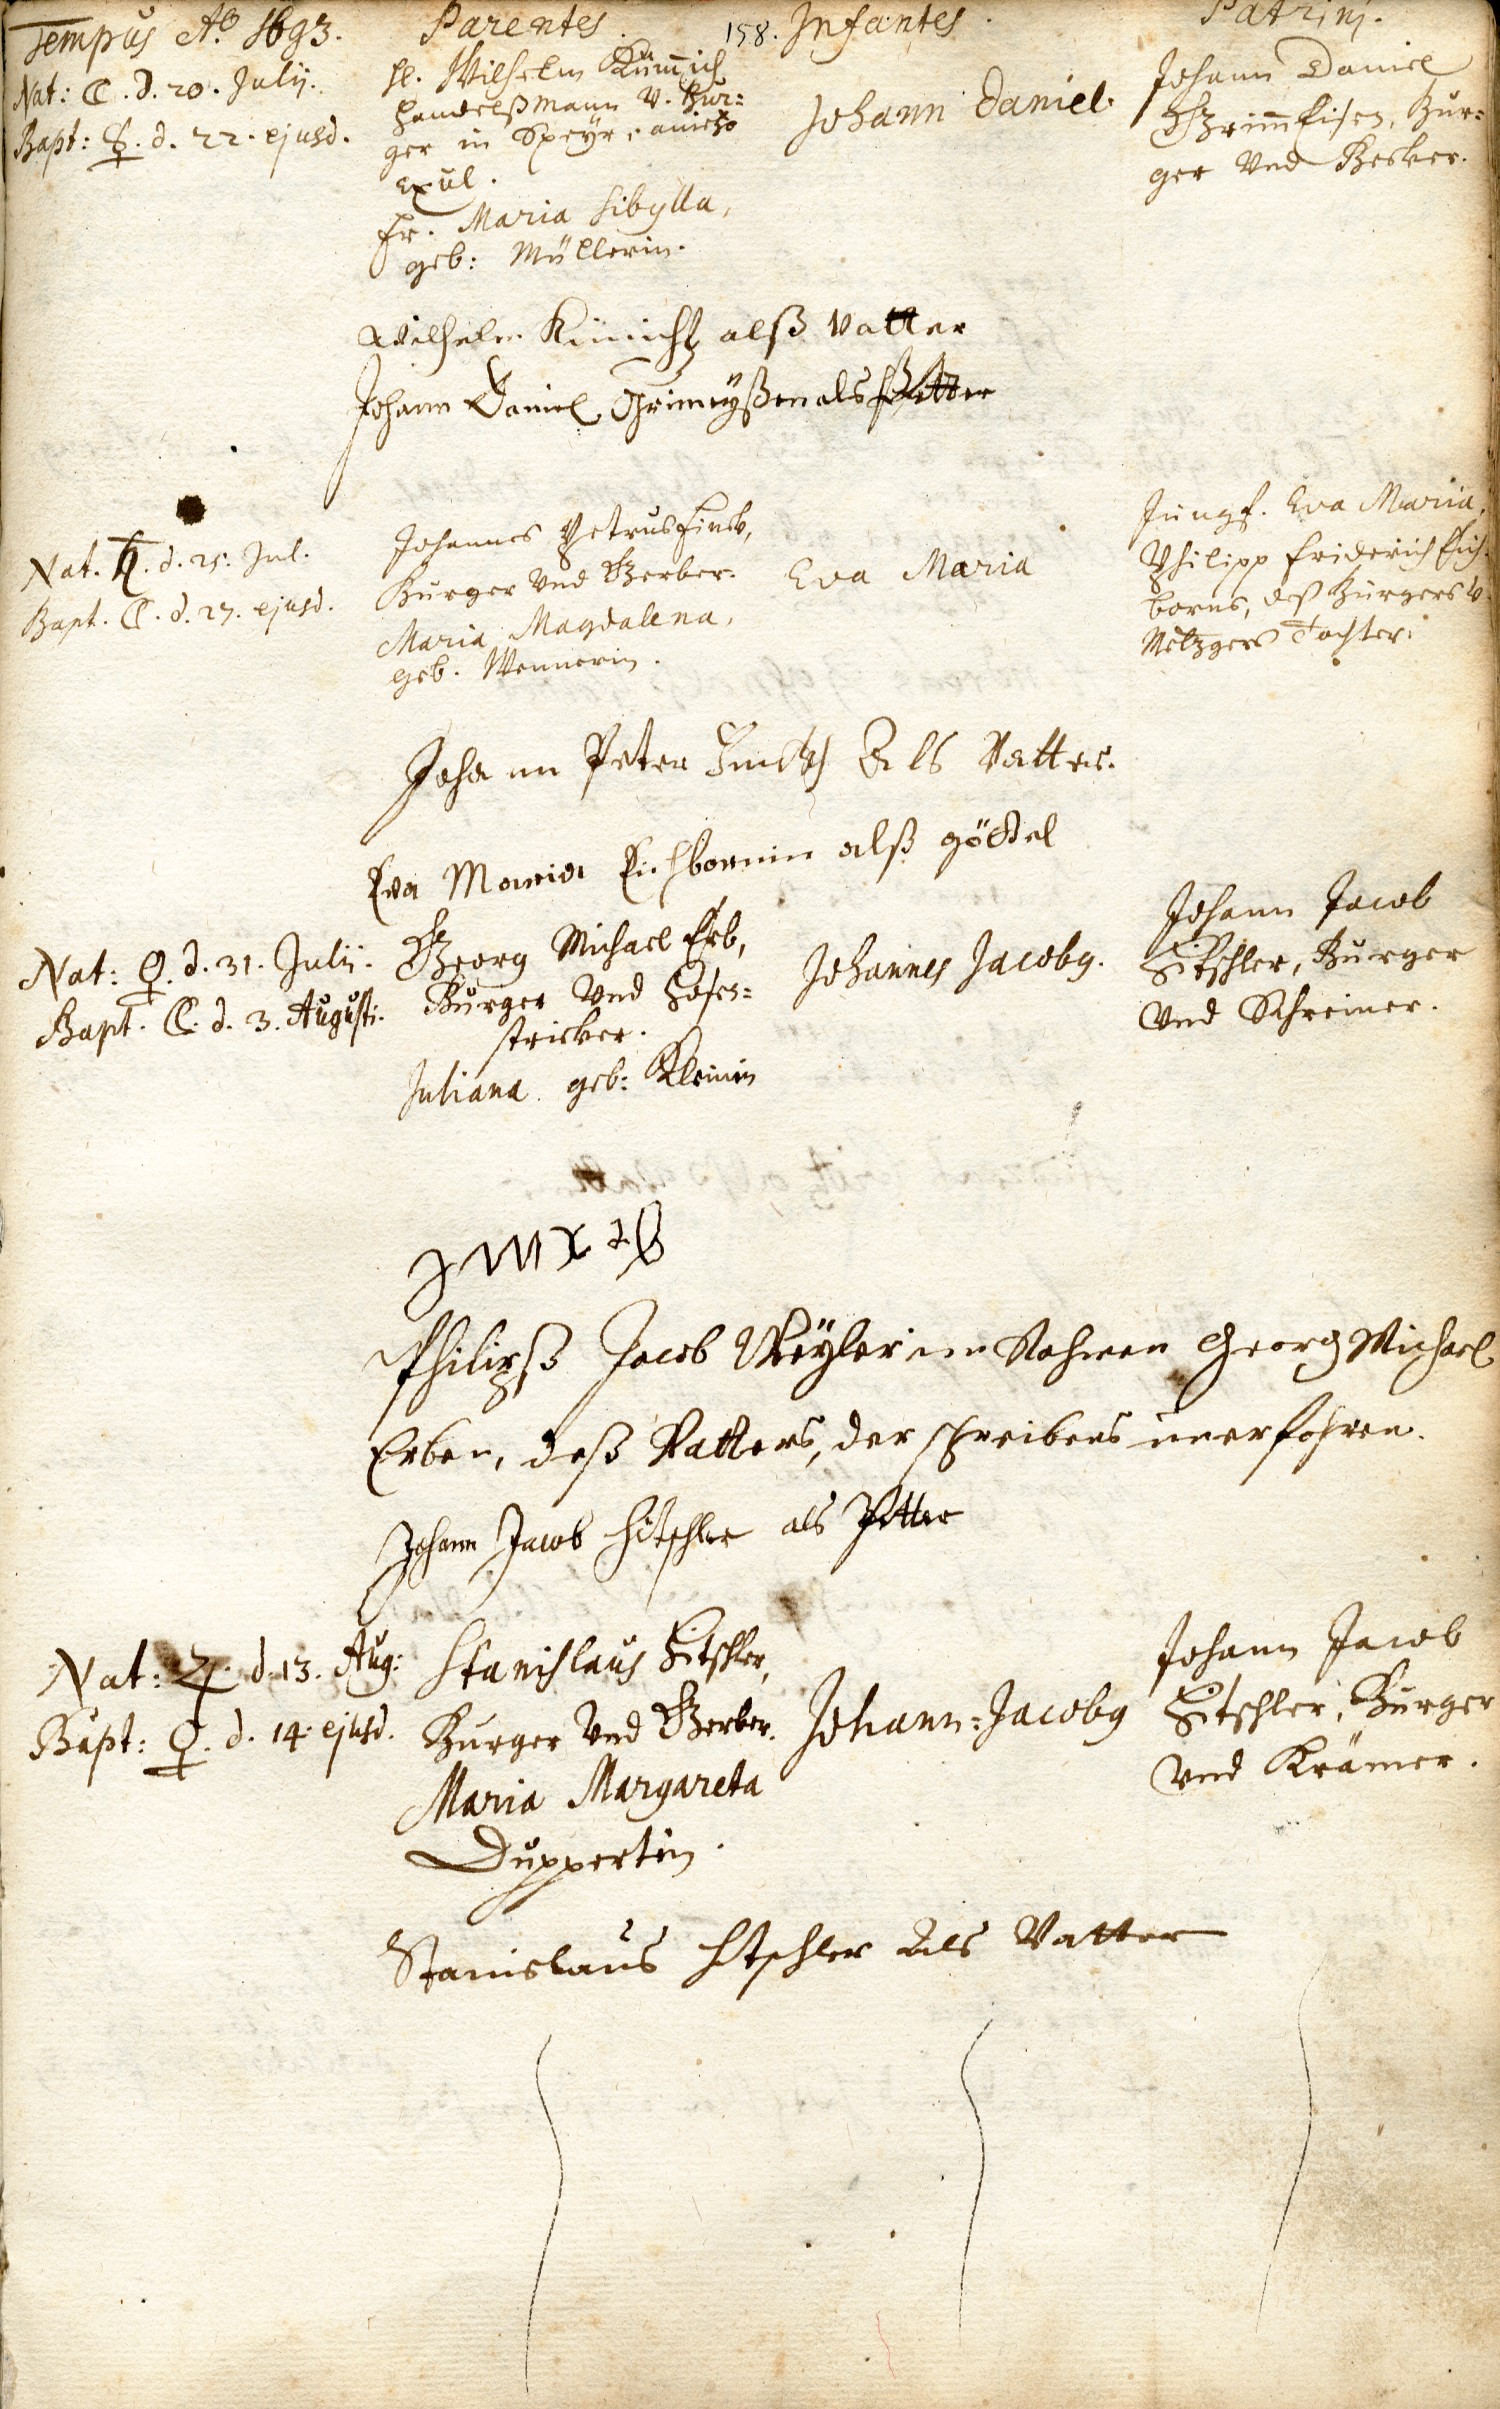 Tempus Aō. 1693. Parentes. 158. Infantes. Patrini.
Nat: ☾. d. 20. Julij.
Bapt: ☿. d. 22. ejusd.
H. Wilhelm Kümich
Handelßmann v. Bur=
ger in Speyr, aniezo
Exul.
Fr. Maria Sibylla,
geb: Müllerin.
Johann Daniel
Johann Daniel
Grimmeisen, Bur=
ger Und Becker.
Wilhelm Kümich alß Vatter
Johann Daniel Grimeyßen als Petter
Nat. ♄. d. 25. Jul.
Bapt. ☾. d. 27. ejusd.
Johannes Petrus Finck,
Burger Und Gerber.
Maria Magdalena,
geb. Wennerin.
Eva Maria
Jungf. Eva Maria,
Philipp Friderich Eich=
borns, deß Burgers v.
Metzgers Tochter.
Johann Peter Finckh Als Vatter.
Eva Maria Eichbornin alß göttel
Nat: ♀. d. 31. Julij.
Bapt. ☾. d. 3. Augusti.
Georg Michael Erb,
Burger Und Hosen=
stricker.
Juliana geb: Kleinin
Johannes Jacobg.
Johann Jacob
Hitschler, Burger
Und Schreiner.
Philipß Jacob Weyler im Nahmen Georg Michael
Erben, deß Vatters, der schreibens unerfahren.
Johann Jacob Hitschler als Petter
Nat: ♃. d. 13. Aug:
Bapt: ♀. d. 14. ejusd.
Stanislaus Hitschler,
Burger Und Gerber.
Maria Margareta
Duppertin.
Johann=Jacobg
Johann Jacob
Hitschler, Burger
Und Krämer.
Stanislaus Hitschler Als Vatter